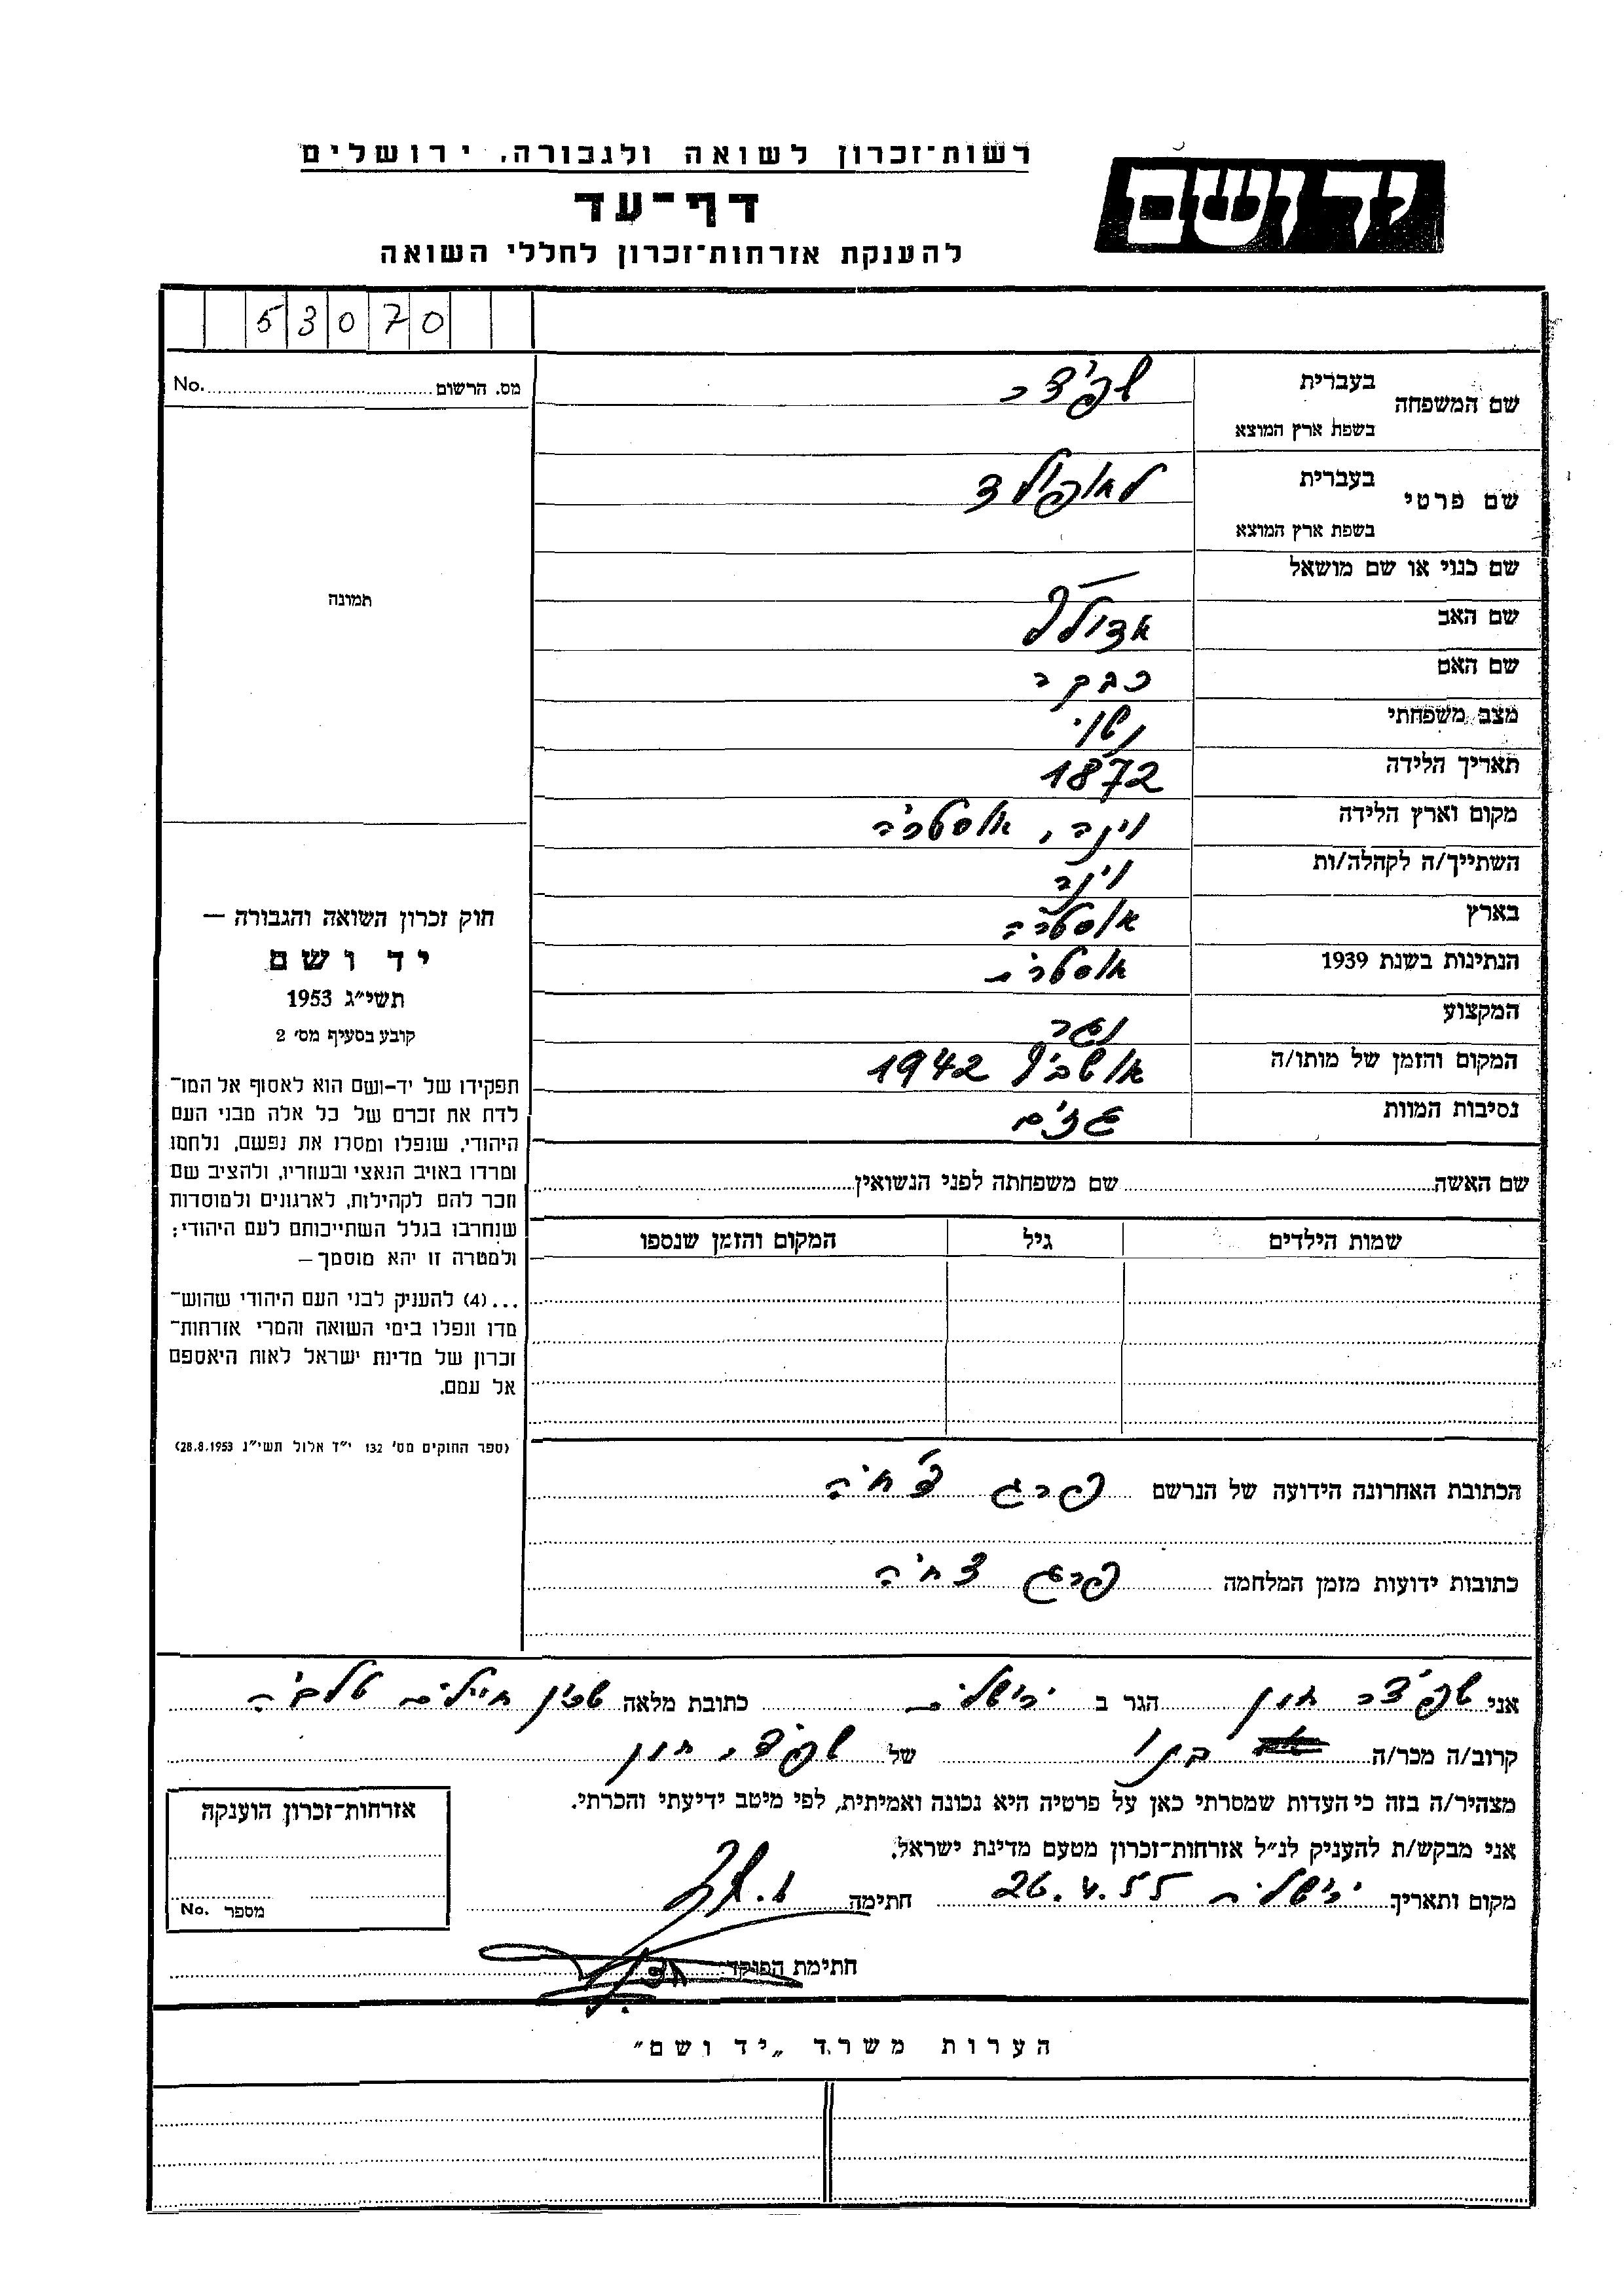 יד ושם
רשות־זכרון לשואה ולגבורה, ירושלים
דף־עד
להענקת אזרחות־זכרון לחללי השואה
53070
מס. הרשום No.
תמונה
שם המשפחה בעברית שפיצר
בשפת ארץ המוצא
שם פרטי בעברית לאופולד
בשפת ארץ המוצא
שם כנוי או שם מושאל —
שם האב אדולף
שם האם רבקה
מצב משפחתי נשוי
תאריך הלידה 1872
מקום וארץ הלידה וינה, אוסטריה
השתייך/ה לקהלה/ות וינה
בארץ אוסטריה
הנתינות בשנת 1939 אוסטרית
המקצוע נגר
המקום והזמן של מותו/ה אושביץ 1942
נסיבות המוות גזים
שם האשה שם משפחתה לפני הנשואין
שמות הילדים גיל המקום והזמן שנספו
חוק זכרון השואה והגבורה —
יד ושם
תשי״ג 1953
קובע בסעיף מס׳ 2
תפקידו של יד-ושם הוא לאסוף אל המו־
לדת את זכרם של כל אלה מבני העם
היהודי, שנפלו ומסרו את נפשם, נלחמו
ומרדו באויב הנאצי ובעוזריו, ולהציב שם
וזכר להם לקהילות, לארגונים ולמוסדות
שנחרבו בגלל השתייכותם לעם היהודי;
ולמטרה זו יהא מוסמך —
...(4) להעניק לבני העם היהודי שהוש־
מדו ונפלו בימי השואה והמרי אזרחות־
זכרון של מדינת ישראל לאות היאספם
אל עמם.
(ספר החוקים מס׳ 132 י״ד אלול תשי״ג 28.8.1953)
הכתובת האחרונה הידועה של הנרשם פרג צ׳חיה
כתובות ידועות מזמן המלחמה פרג צחיה
אני שפיצר הגר ב ירושלים כתובת מלאה שכון חיילים טלביה
קרוב/ה מכר/ה בנו של שפיצר
מצהיר/ה בזה כי העדות שמסרתי כאן על פרטיה היא נכונה ואמיתית, לפי מיטב ידיעתי והכרתי.
אני מבקש/ת להעניק לנ״ל אזרחות־זכרון מטעם מדינת ישראל.
מקום ותאריך ירושלים 26.4.55 חתימה
חתימת הפוקד
אזרחות־זכרון הוענקה
מספר No.
הערות משרד „יד ושם״